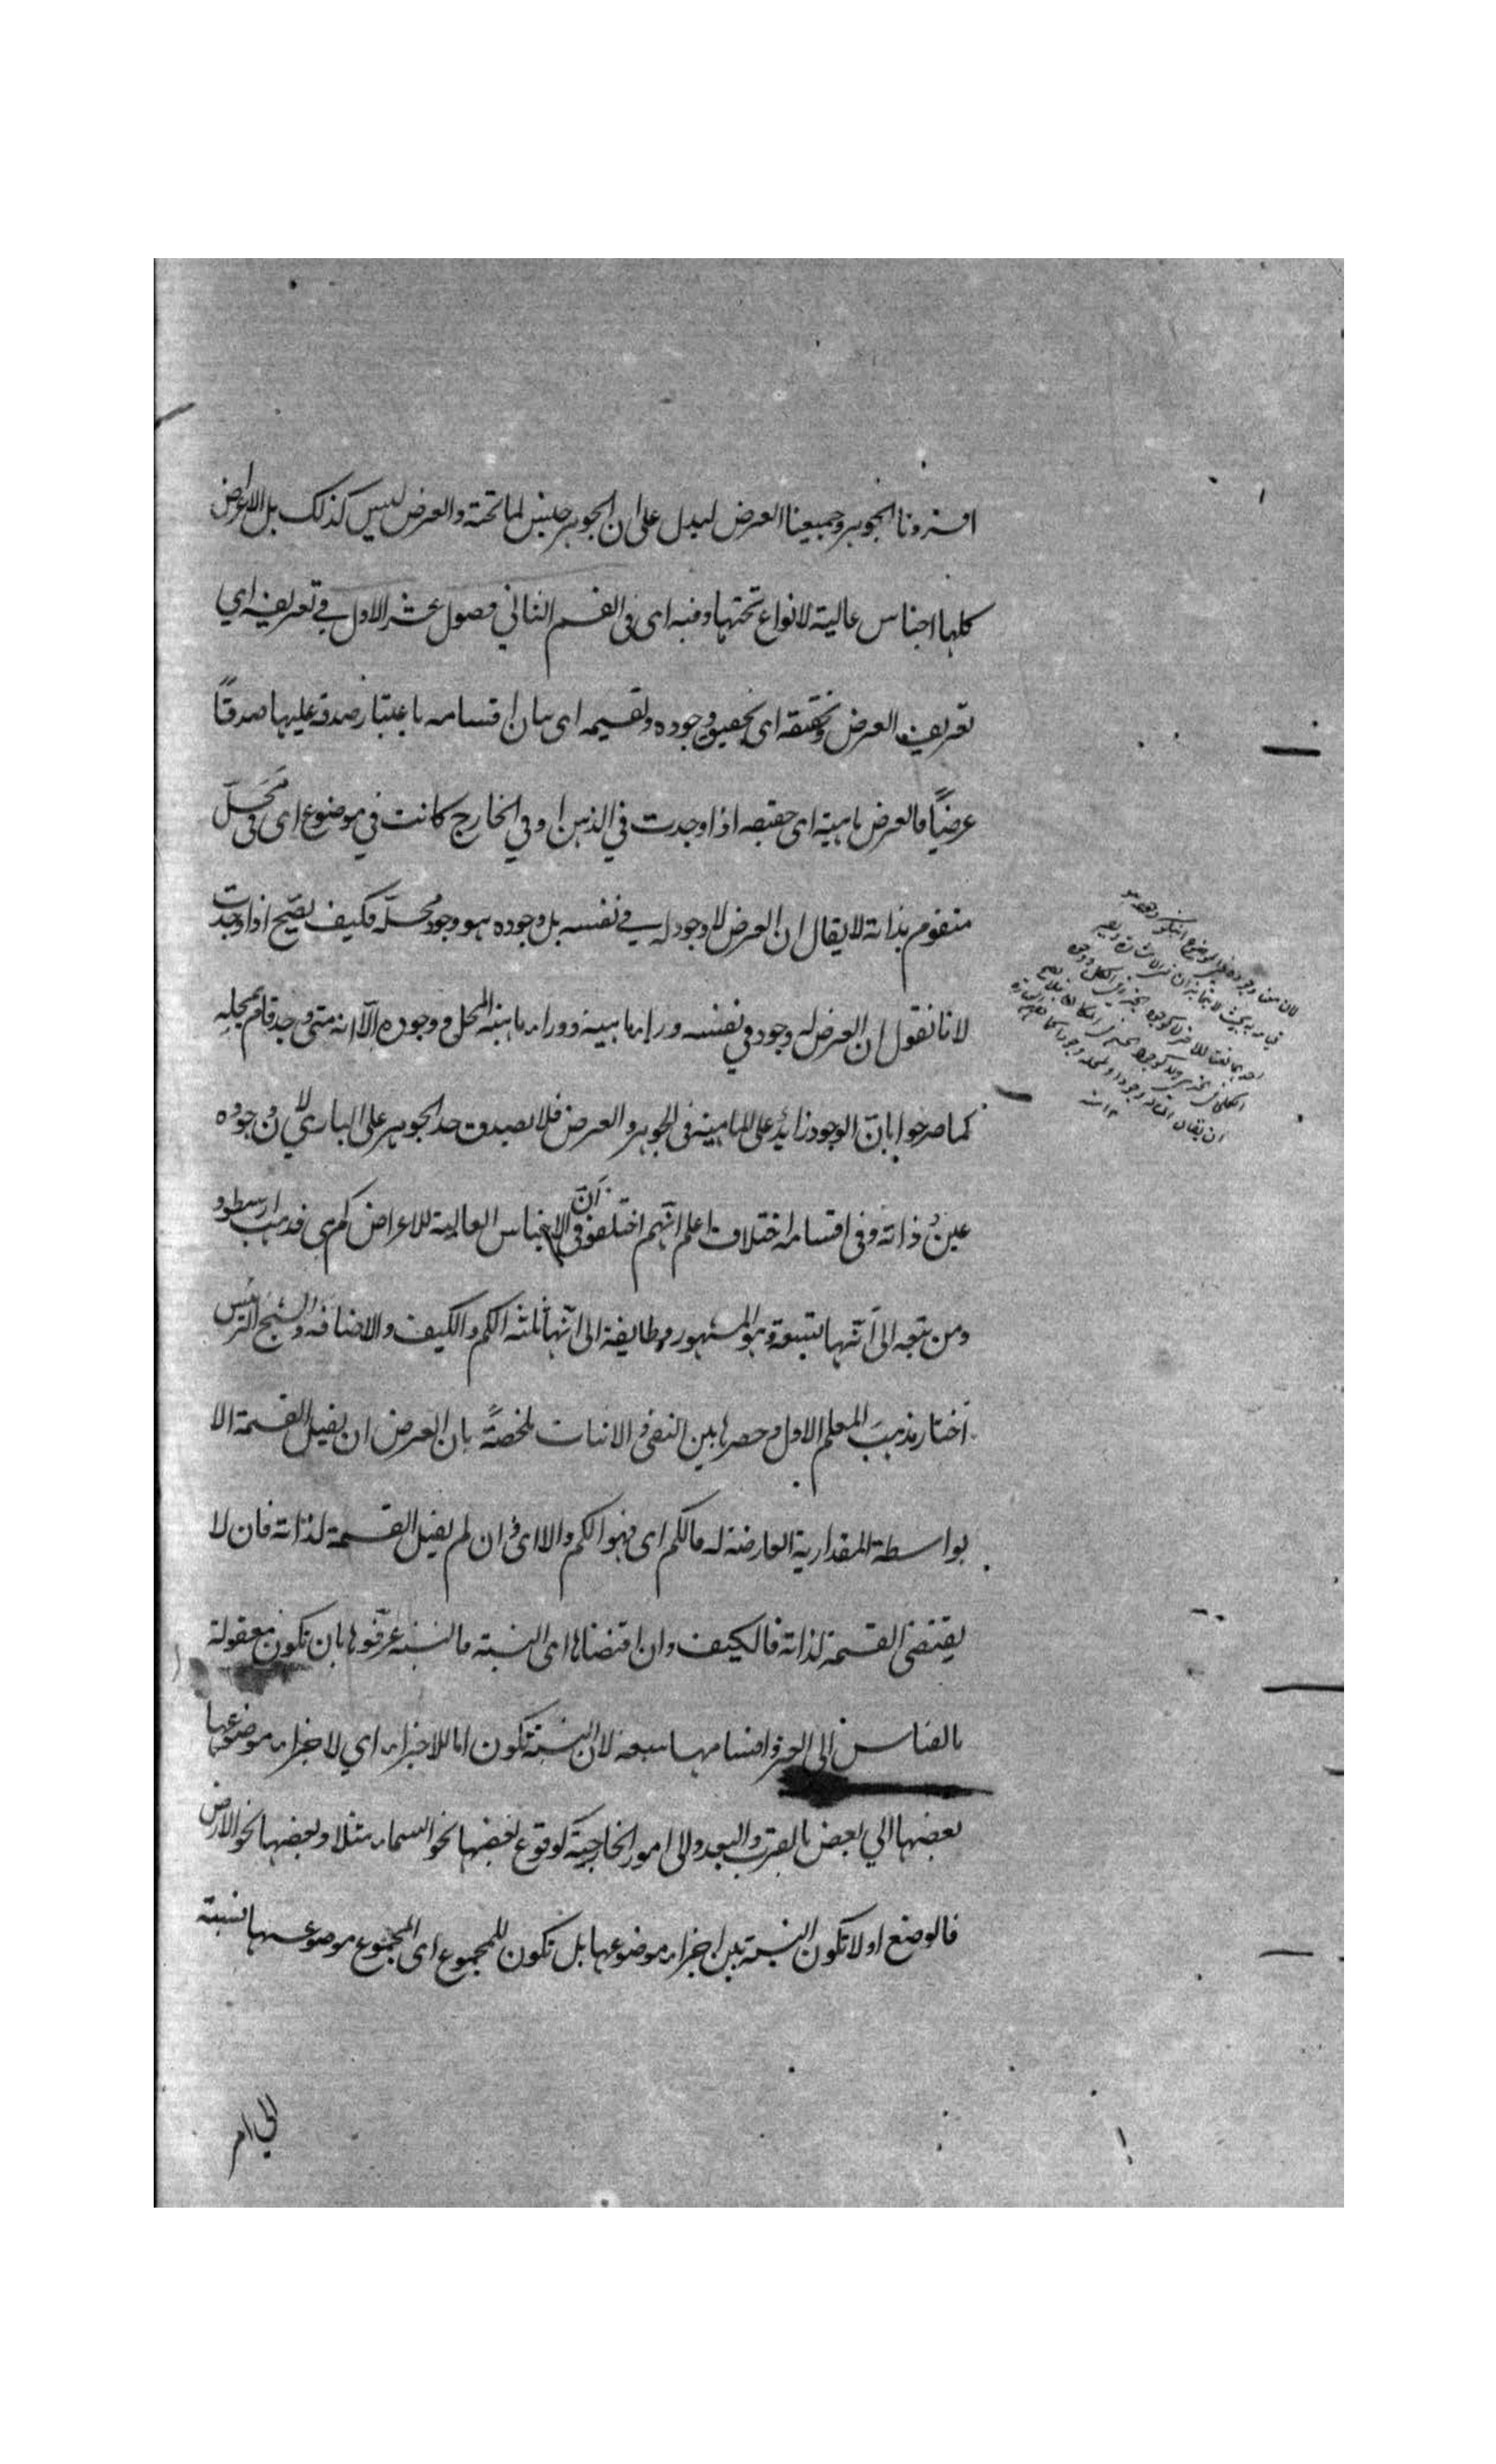 افردنا الجوهر وجمعنا العرض ليدل على ان الجوهر جنس لما تحته والعرض ليس كذلك بل الاعراض
كلها اجناس عالية لانواع تحتها وفيه اى فى القسم الثاني فصول عشر الاول في تعريفه اي
تعريف العرض وتحققه اى تحقيق وجوده وتقسيمه اى بيان اقسامه باعتبار صدقه عليها صدقًا
عرضيًا فالعرض ماهية اى حقيقه اذا وجدت في الذهن او في الخارج كانت في موضوع اى فى مَحَلّ
متقوم بذاته لا يقال ان العرض لا وجود له في نفسه بل وجوده هو وجود محلّه فكيف يصّح اذا وجدت
لانا نقول ان العرض له وجود في نفسه وراء ماهيته ووراء ماهية المحل و وجوده الّا انه متى وجد قام بمحله
كما صرحوا بانّ الوجود زائد على الماهية فى الجوهر والعرض فلا يصدق حد الجوهر على الباري لان وجوده
عينُ ذاته وفى اقسامه اختلاف اعلم انهم اختلفوا فى انّ الاجناس العالية للاعراض كم هى فذهب ارسطو
ومن تبعه الى انّها تسعة وهو المشهور وطايفة الى انّها ثلثه الكم والكيف والاضافه والشيخ الرئيس
اختار مذهبَ المعلم الاول وحصرها بين النفى والاثبات ملخصهً بان العرض ان يقبل القسمة الا
بواسطة المقدارية العارضة له فالكم اى فهو الكم والا اى و ان لم يقبل القسمة لذاته فان لا
يقتضى القسمة لذاته فالكيف وان اقتضاها اى النسبة فالنسبة عرّفوها بان تكون معقولة
بالقياس الى الغير واقسامها سبعه لان النسبة تكون اما للاجزاء اي لاجزاء موضوعها
بعضها الي بعض بالقرب والبعد والى امور الخارجية كوقوع بعضها نحو السماء مثلا وبعضها نحو الارض
فالوضع او لا تكون النسبة بين اجزاء موضوعها بل تكون للمجموع اى المجموع موضوعها نسبة
الي امر